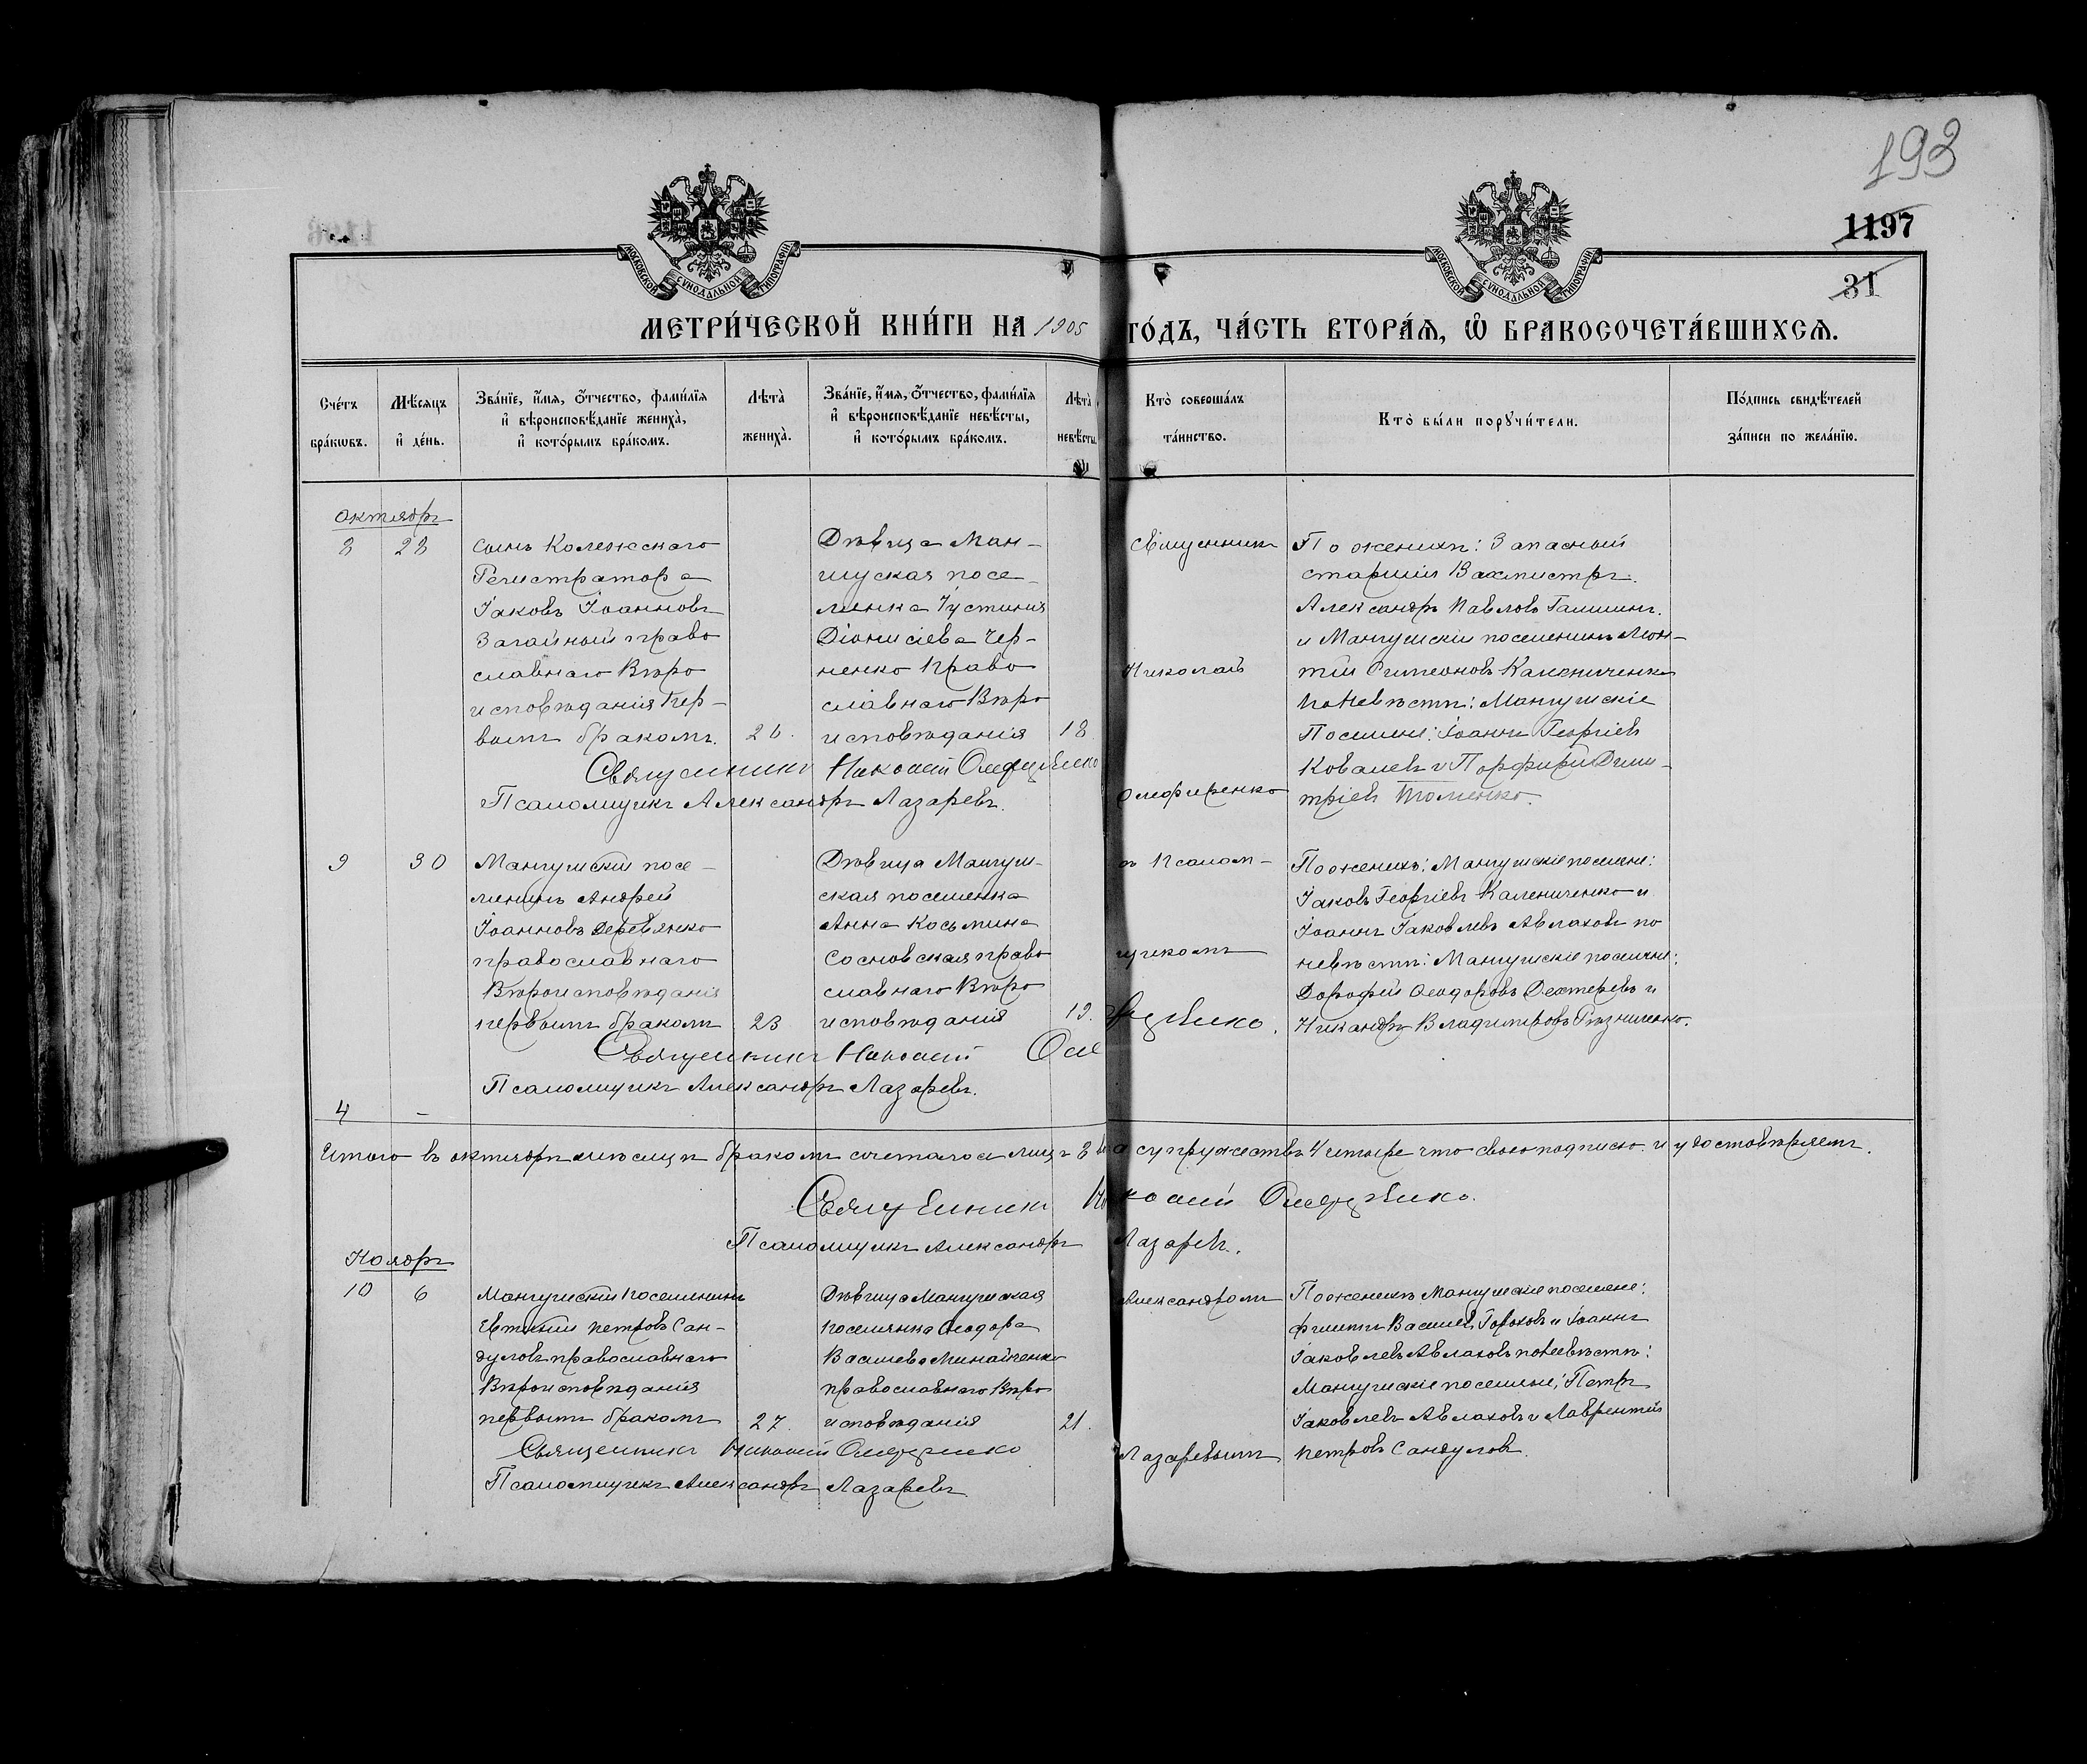 193
1197
31
МОСКОВСКОЙ СѴНОДАЛЬНОЙ ТИПОГРАФІИ
МОСКОВСКОЙ СѴНОДАЛЬНОЙ ТИПОГРАФІИ
МЕТРИ́ЧЕСКОЙ КНИ́ГИ НА 1905 ГО́ДЪ, ЧА́СТЬ ВТОРА́Я, Ѡ҆ БРАКОСОЧЕТА́ВШИХСѦ.
Сче́тъ бра́кѡвъ.
Мѣ́сяцъ и҆ де́нь.
Зва́нїе, и҆́мя, о҆́тчество, фами́лїя и҆ вѣроисповѣ́данїе жениха̀, и҆ кото́рымъ бра́комъ.
Лѣта̀ жениха̀.
Зва́нїе, и҆́мя, о҆́тчество, фами́лїя и҆ вѣроисповѣ́данїе невѣ́сты, и҆ кото́рымъ бра́комъ.
Лѣта̀ невѣ́сты.
Кто̀ соверша́лъ та́инство.
Кто̀ бы́ли порꙋчи́тели.
По́дпись свидѣ́телей за́писи по жела́нїю.
Октябрь
8
28
Сынъ Колежскаго
Регистратора
Іаковъ Іоанновъ
Загайный право
славнаго Вѣро
исповѣданія Пер-
вымъ бракомъ.
26.
Дѣвица Ман-
гуская посе-
лянка Іустинія
Діонисіева Чер-
ненко Право
славнаго Вѣро
исповѣданія
18
Священникъ
Николай
Олефиренко
По женихѣ: Запасный
старшій Вахмистръ
Александръ Павловъ Гашинъ.
и Мангушскій поселянинъ Леон-
тій Симеоновъ Калениченко
По Невѣстѣ: Мангушскіе
Поселяне: Іоаннъ Георгіевъ
Ковалевъ и Порфирій Дими-
тріевъ Томенко.
Священникъ Николай Олефиренко
Псаломщикъ Александръ Лазаревъ.
9
30
Мангушскій посе-
лянинъ Андрей
Іоанновъ Деревянко
православнаго
Вѣроисповѣданія
первымъ бракомъ
23
Дѣвица Мангуш-
ская поселянка
Анна Косьмина
Сосновская право
славнаго Вѣро
исповѣданія
19.
съ Псалом-
щикомъ
По женихѣ: Мангушскіе поселяне:
Іаковъ Георгіевъ Калениченко и
Іоаннъ Іаковлевъ Авлаховъ по
невѣстѣ: Мангушскіе поселяне:
Дорофей Ѳеодоровъ Дехтеревъ и
Никандръ Владиміровъ Рѣзниченко.
Священникъ Николай Олефиренко.
Псаломщикъ Александръ Лазаревъ.
4 -
Итого въ октябрѣ мѣсяцѣ бракомъ сочеталося лицъ 8 а супружествъ Четыре что своею подписью и удостовѣряемъ.
Священникъ Николай Олефиренко.
Псаломщикъ Александръ Лазаревъ.
Ноябрь
10
6
Мангушскій поселянинъ
Евтихій Петровъ Сан-
дуловъ православнаго
Вѣроисповѣданія
первымъ бракомъ
27.
Дѣвица Мангушская
поселянка Ѳеодора
Васильева Минайченко
православнаго Вѣро
исповѣданія
21.
Александромъ
Лазаревымъ
По женихѣ Мангушскіе поселяне:
Филиппъ Васильевъ Гороховъ и Іоаннъ
Іаковлевъ Авлаховъ по невѣстѣ:
Мангушскіе поселяне: Петръ
Іаковлевъ Авлаховъ и Лаврентій
Петровъ Сандуловъ.
Священникъ Николай Олефиренко
Псаломщикъ Александръ Лазаревъ